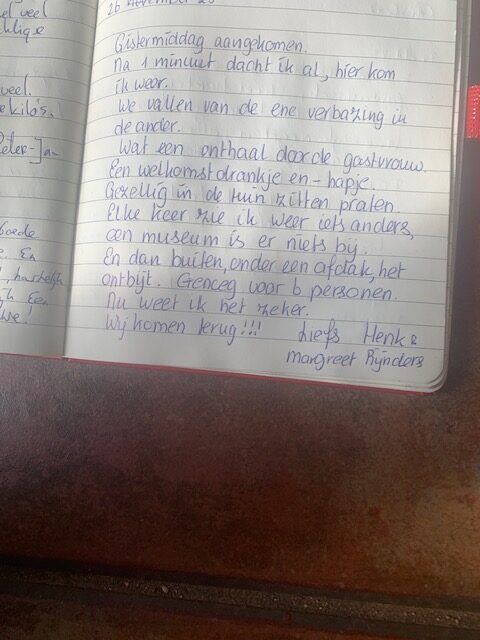 el veel
26 november
Gistermiddag aangekomen.
Na 1 minuut dacht ik al, hier kom
ik weer.
veel.
We vallen van de ene verbazing in
kilo's.
de ander.
Wat een onthaal door de gastvrouw.
Een welkomstdrankje en-hapje.
Gezellig in de tuin zitten praten
Elke keer zie ik weer iets anders,
een museum is er niets bij.
En dan buiten, onder een afdak, het
ontbijt. Genoeg voor 6 personen.
Nu weet ik het zeker.
Wij komen terug!!! Liefs Henk &
Margreet Rijnders